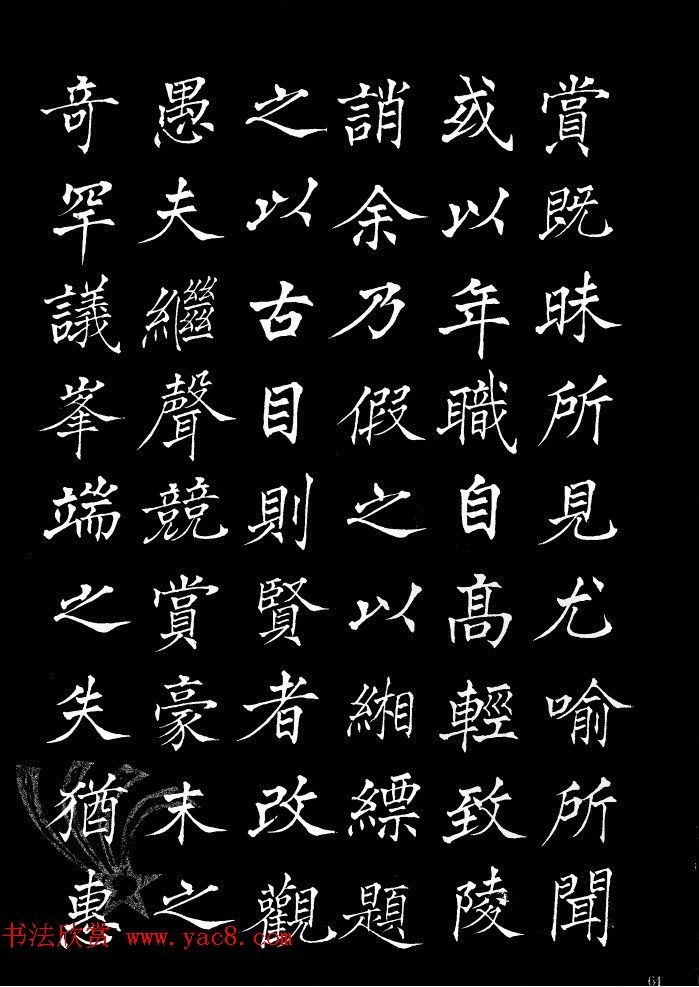 賞既昧所見尤喻所聞
或以年職自高輕致陵
誚余乃假之以緗縹題
之以古目則賢者改觀
愚夫繼聲競賞豪末之
奇罕議峯端之失猶惠
书法欣赏 www.yac8.com
61